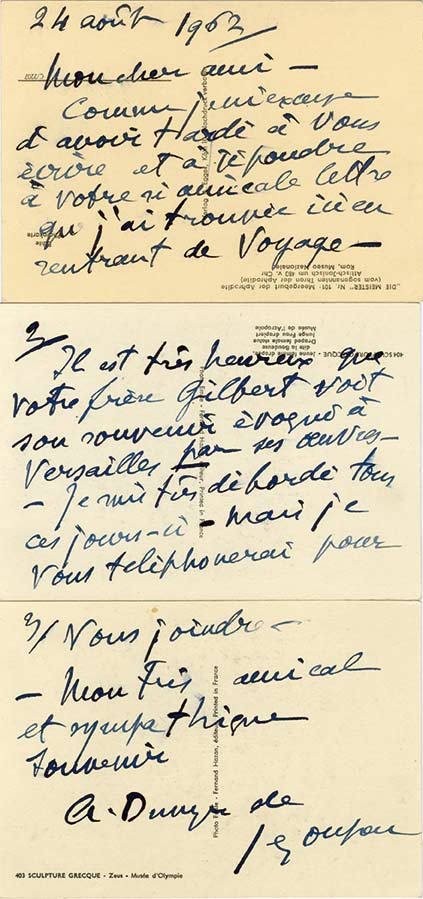 24 août 1962/
Mon cher ami —
Comme je m'excuse
d'avoir tardé à vous
écrire et à répondre
à votre si amicale lettre
que j'ai trouvée ici en
rentrant de voyage —
"DIE MEISTER" Nr. 101 Meergeburt der Aphrodite
(vom sogenannten Thron der Aphrodite)
Attisch-Jonisch um 460 v. Chr.
Rom, Museo Nazionale
2/
Il est très heureux que
votre frère Gilbert voit
son souvenir évoqué à
Versailles par ses œuvres —
— Je suis très débordé tous
ces jours-ci — mais je
vous téléphonerai pour
404 SCULPTURE GRECQUE
dite la boudeuse
Draped female statue
Junge Frau drapiert
Musée de l'Acropole
3/ vous joindre —
— Mon très amical
et sympathique
souvenir
A. Dunoyer de
Segonzac
Fernand Hazan, éditeur, Printed in France
403 SCULPTURE GRECQUE - Zeus - Musée d'Olympie